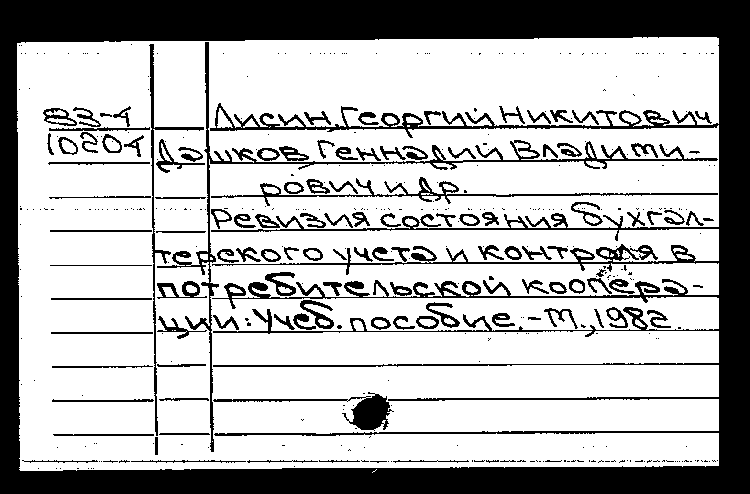 83-4 Лисин, Георгий Никитович
10204 Дашков Геннадий Владими-
рович и др.
Ревизия состояния бухгал-
терского учета и контроля в
потребительской коопера-
ции: Учеб. пособие. - М., 1982.